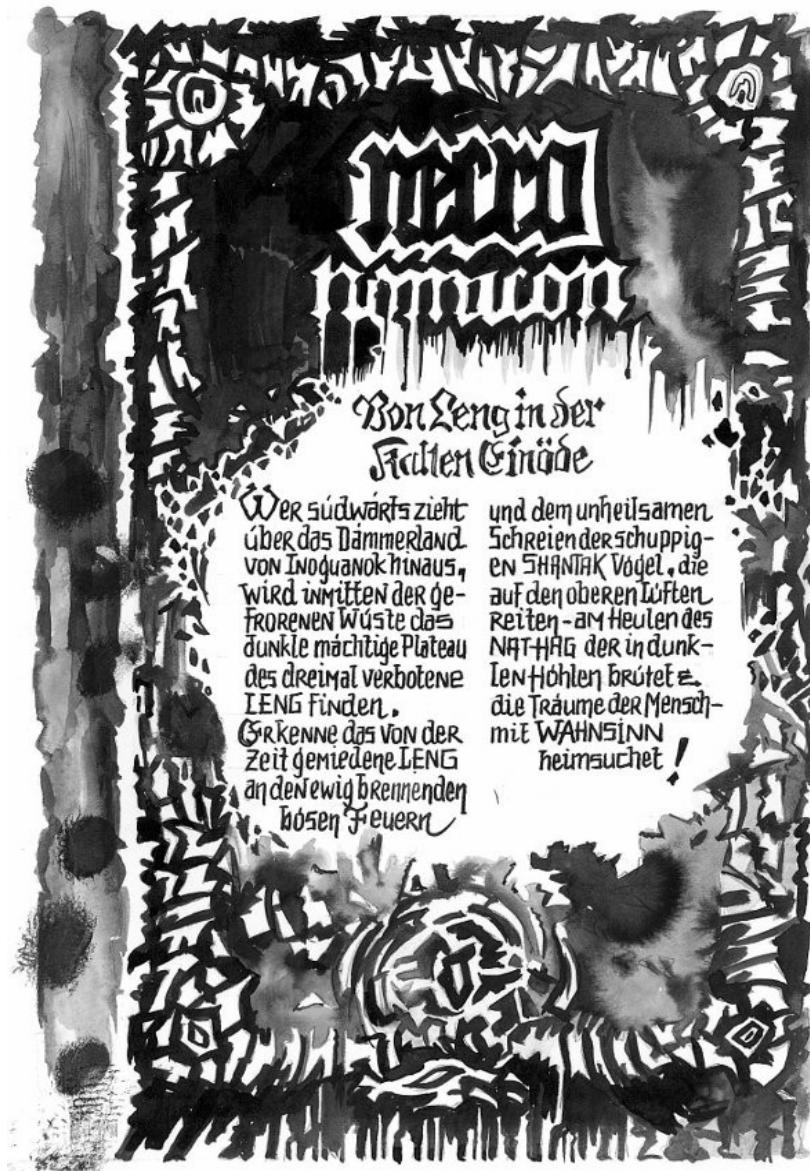 necro
nomicon
Von Leng in der
Kalten Einöde
Wer südwärts zieht
über das Dämmerland
von Inoguanok hinaus,
wird inmitten der ge-
frorenen Wüste das
dunkle mächtige Plateau
des dreimal verbotene
LENG finden.
Erkenne das von der
Zeit gemiedene LENG
an den ewig brennenden
bösen Feuern
und dem unheilsamen
Schreien der schuppig-
en SHANTAK Vögel, die
auf den oberen Lüften
Reiten - am Heulen des
NAT-HAG der in dunk-
len Höhlen brütet &
die Träume der Mensch-
mit WAHNSINN
heimsuchet!